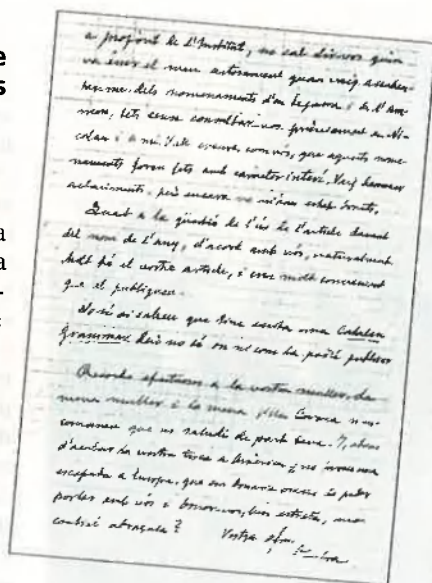 e
s
a
a
-
:
a propòsit de l'Institut, no cal dir-vos quin
va ésser el meu astorament quan vaig assaben-
tar-me dels nomenaments d'en Segarra i de l'Ara-
mon, fets sense consultar-vos prèviament a Ni-
colau i a mi. Vull creure, com vós, que aquests nome-
naments foren fets amb caràcter interí. Vaig demanar
aclariments, però encara no m'han estat donats.
Quant a la qüestió de l'ús de l'article davant
del nom de l'any, d'acord amb vós, naturalment
Molt bé el vostre article, i crec molt convenient
que el publiqueu.
No sé si sabeu que tinc escrita una Catalan
Grammar. Però no sé on ni com la podré publicar
Records afectuosos a la vostra muller, de
meva muller i la meva filla
comanen que us saludi de part seva. I, abans
d'acabar la vostra a Amèrica, no fareu una
escapada a Europa, que ens
parlar amb vós i donar-vos, ben estreta, una
cordial abraçada?
Vostre